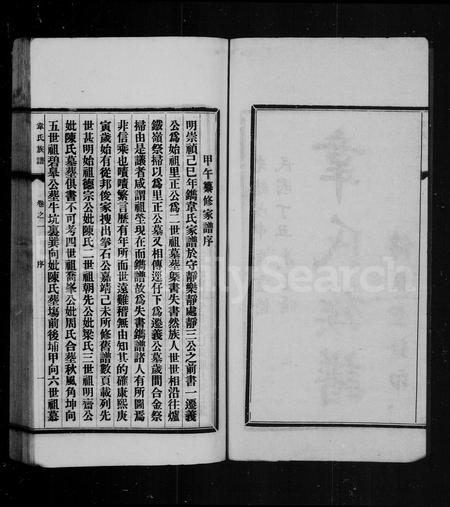 甲午纂修家譜序
明崇禎己巳年鐫韋氏家譜於守靜樂靜處靜三公之前書一遷義
公為始祖里正公為二世祖墓葬槩書失書然族人世世相沿往爐
鐵嶺祭掃以為里正公墓又相傳逕仔下為遷義公墓歲間合金祭
掃由是議者咸謂祖塋現在而鐫譜故為失書鐫譜諸人有所圖焉
非信乘也嘖嘖繁言歷有年所而世遠難稽無由知其的確康熙庚
寅歲始有從邦俊家搜出拏石公嘉靖己未所修舊譜數頁載列先
世甚明始祖德宗公妣陳氏二世祖朝先公妣梁氏三世祖明齋公
妣陳氏墓葬俱書不可考四世祖喬峯公妣周氏合葬秋風角坤向
五世祖碧皋公葬牛坑裏巽向妣陳氏葬塲前後埇甲向六世祖慕
韋氏族譜 卷之一 序 一
民國丁丑
韋氏族譜
FamilySearch